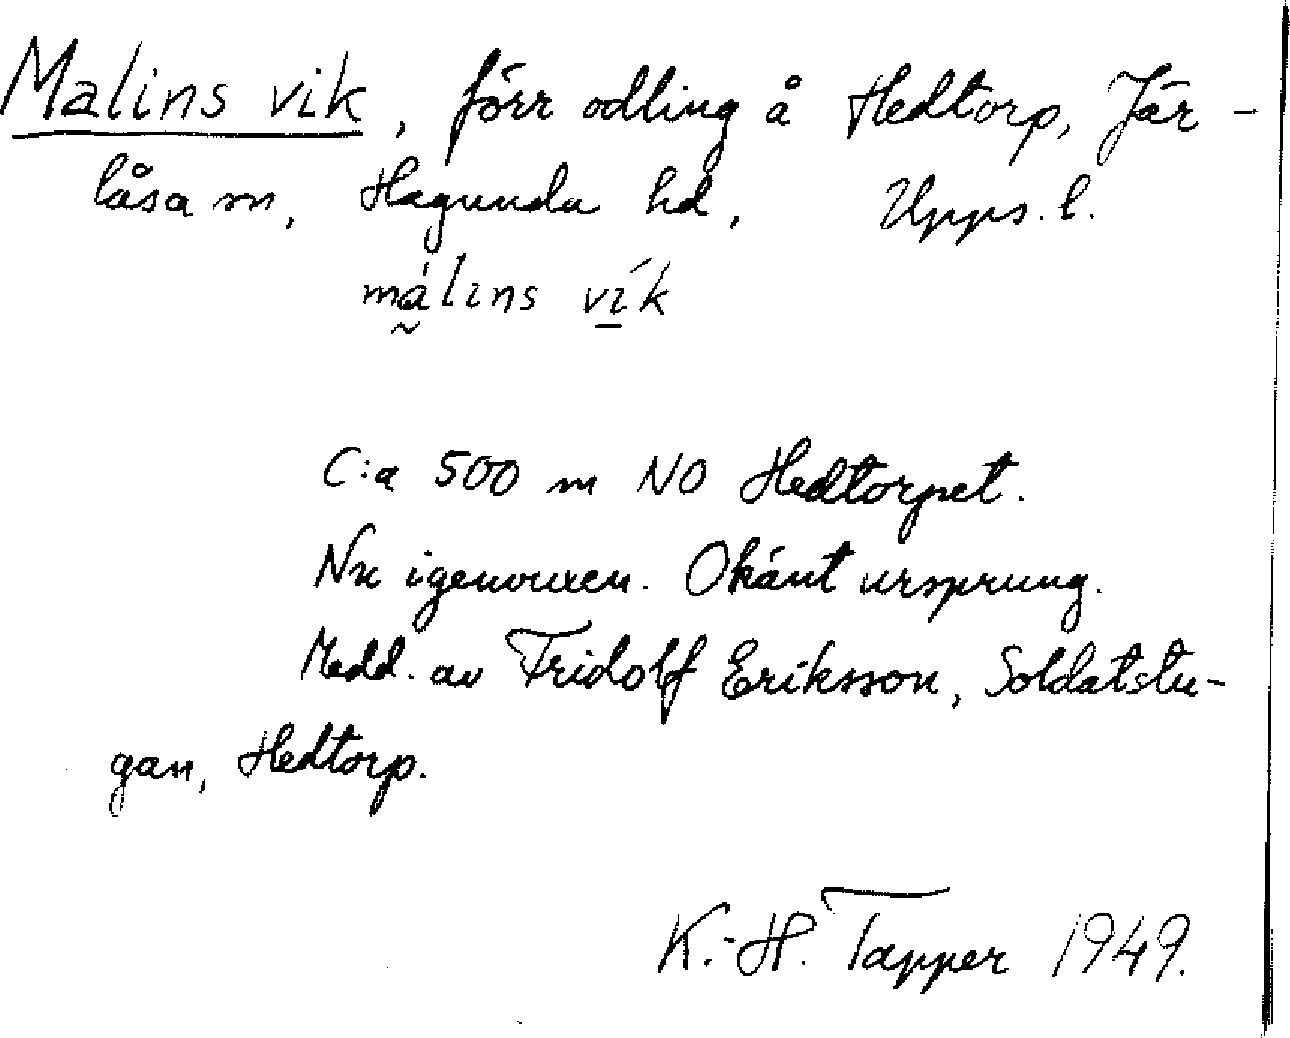 Malins vik, förr odling å Hedtorp, Jär-
låsa sn, Hagunda hd, Upps. l.
má̰lins ví̱k
C:a 500 m NO Hedtorpet.
Nu igenvuxen. Okänt ursprung.
Medd. av Fridolf Eriksson, Soldatstu-
gan, Hedtorp.
K.-H. Tapper 1949.